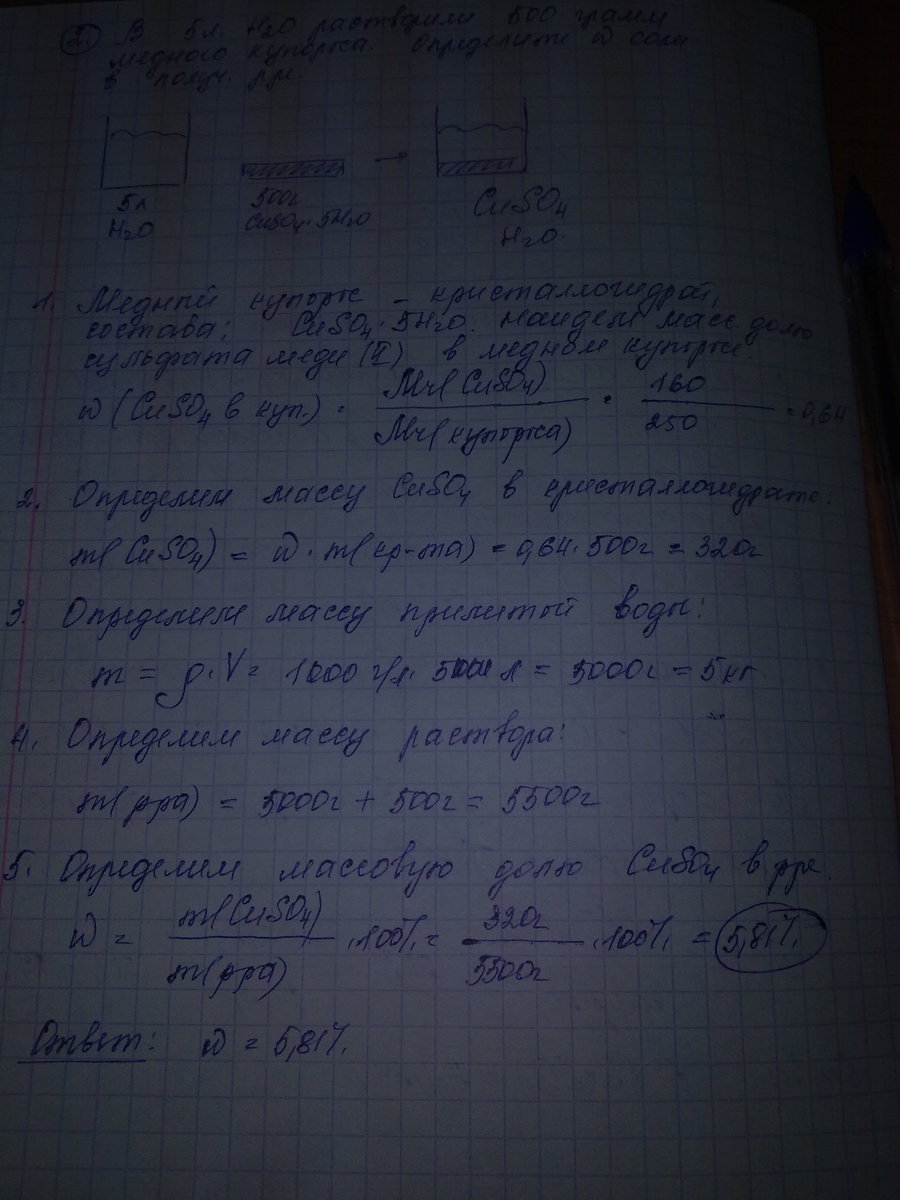 2. В 5л. H2O растворили 500 грамм
медного купороса. Определите ω соли
в получ. р-ре.
5л
H2O
500г
CuSO4·5H2O
CuSO4
H2O.
1. Медный купорос - кристаллогидрат,
состава: CuSO4·5H2O. Найдем масс. долю
сульфата меди (II) в медном купоросе
ω (CuSO4 в куп.) = Mr(CuSO4) / Mr(купороса) = 160 / 250 = 0,64
2. Определим массу CuSO4 в кристаллогидрате:
m(CuSO4) = ω · m(кр-та) = 0,64 · 500г = 320г
3. Определим массу прилитой воды:
m = ρ·V = 1000 г/л · 5 л = 5000г = 5 кг
4. Определим массу раствора:
m(р-ра) = 5000г + 500г = 5500г
5. Определим массовую долю CuSO4 в р-ре.
ω = m(CuSO4) / m(р-ра) · 100% = 320г / 5500г · 100% = 5,81%
Ответ: ω = 5,81%.